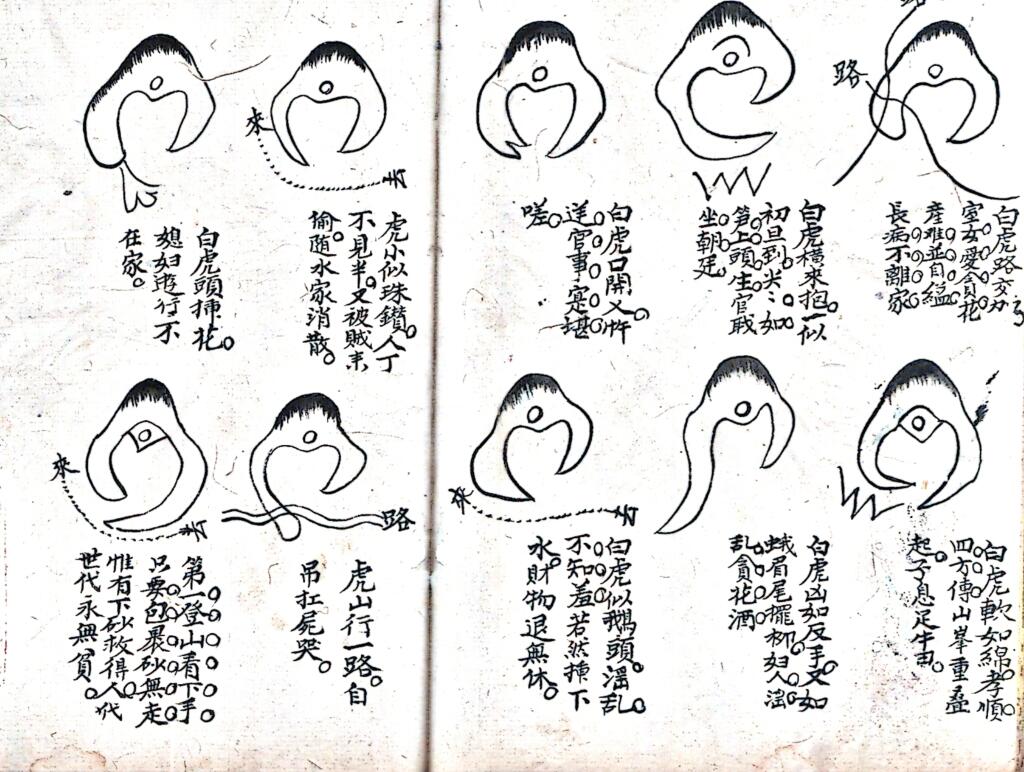 路
路
白虎路交加
室女愛貪花
產難並自縊
長病不離家
白虎橫來抱一似
初旦到尖尖如
笋上頭生官職
坐朝廷
白虎口開又忤
逆官事寔堪
嗟
來
虎小似珠鑽人丁
不見半又被賊來
偷随水家消散
白虎頭揷花
媳妇遊行不
在家
白虎軟如綿孝順
四方傳山峯重叠
起子息足牛田
白虎凶如反手又如
蛾眉尾擺柳妇人滛
乱貪花酒
來
白虎似鵝頭滛乱
不知羞若然揀下
水財物退無休
路
虎山行一路自
吊扛屍哭
來
第一登山看下手
只要包裹砂無走
惟有下砂救得人代
世代永無貧